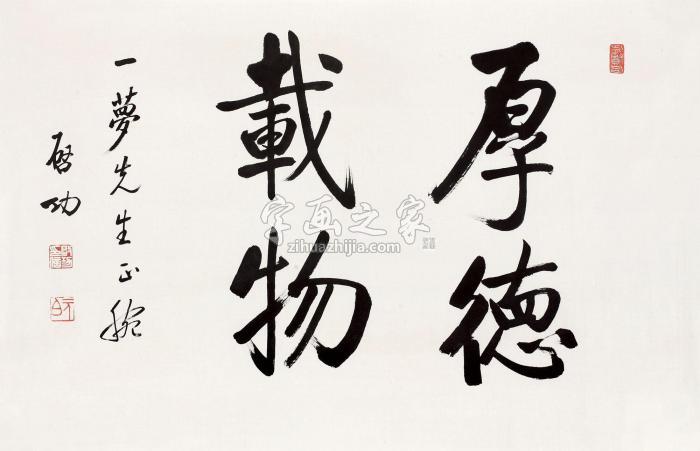 厚德
載物
一夢先生正腕
启功
字画之家
zihuazhijia.com